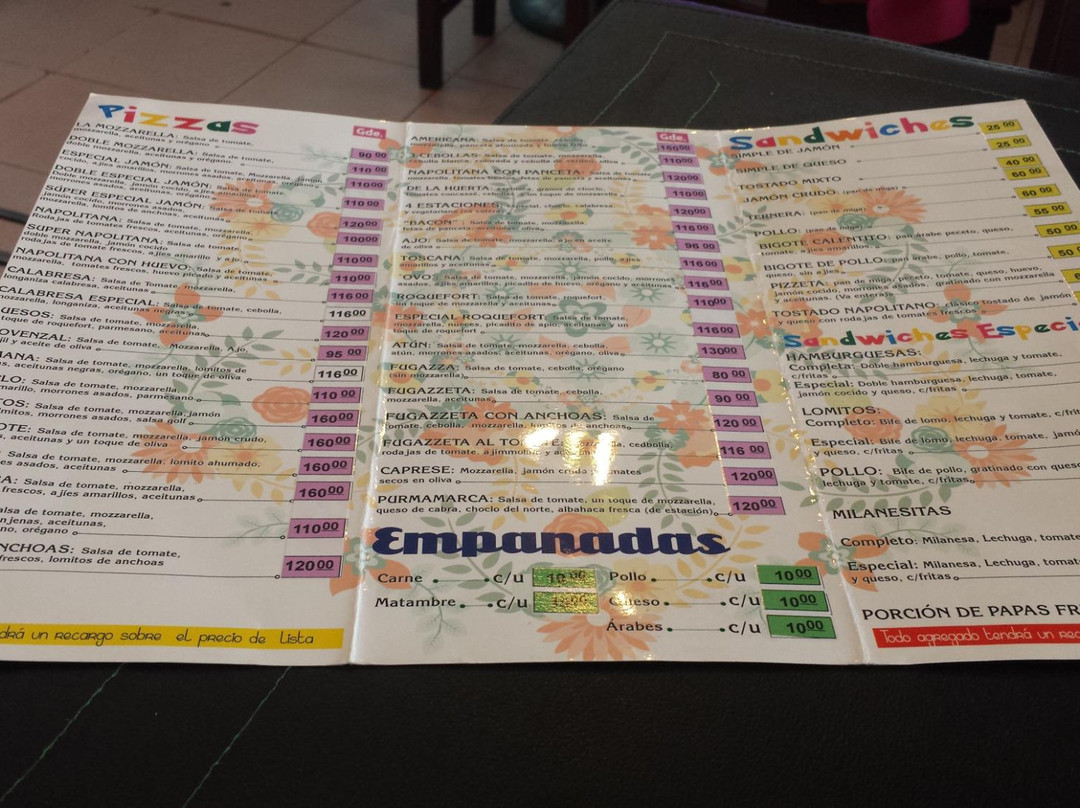 Pizzas
Gde.
LA MOZZARELLA: Salsa de tomate,
mozzarella, aceitunas y orégano 90 00
DOBLE MOZZARELLA: Salsa de tomate,
doble mozzarella, aceitunas y orégano 110 00
ESPECIAL JAMÓN: Salsa de tomate, Mozzarella, Jamón
cocido, 110 00
DOBLE ESPECIAL JAMÓN:
Doble mozzarella, jamón cocido, 110 00
SÚPER ESPECIAL JAMÓN: Salsa de tomate,
jamón cocido, morrones asados, aceitunas
mozzarella, lomitos de anchoas, 120 00
NAPOLITANA: Salsa de tomate, mozzarella,
Rodajas de tomates frescos, aceitunas 100 00
SÚPER NAPOLITANA: Salsa de tomate,
mozzarella, jamón cocido,
rodajas de tomate frescos, ajíes amarillo 110 00
NAPOLITANA CON HUEVO:
mozzarella, tomates frescos, huevo 110 00
CALABRESA: Salsa de Tomate, mozzarella,
longaniza calabresa, aceitunas 116 00
CALABRESA ESPECIAL: Salsa de tomate, cebolla,
mozzarella, longaniza, aceitunas negras 116 00
QUESOS: Salsa de tomate, mozzarella,
toque de roquefort, parmesano, 120 00
OVENZAL: Salsa de tomate, Mozzarella, Ajo,
jil y aceite de oliva 95 00
ANA: Salsa de tomate, mozzarella, lomitos de
as, aceitunas negras, orégano, un toque de oliva 116 00
LO: Salsa de tomate, mozzarella
marillo, morrones asados, parmesano 110 00
TOS: Salsa de tomate, mozzarella, jamón
lomitos, morrones asados, salsa golf 160 00
OTE: Salsa de tomate, mozzarella, jamón crudo,
a, aceitunas y un toque de oliva 160 00
Salsa de tomate, mozzarella, lomito ahumado,
es asados, aceitunas 160 00
A: Salsa de tomate, mozzarella,
frescos, ajíes amarillos, aceitunas 160 00
Salsa de tomate, mozzarella,
enjenas, aceitunas,
no, orégano 110 00
NCHOAS: Salsa de tomate,
frescos, lomitos de anchoas 120 00
drá un recargo sobre el precio de Lista
Gde.
AMERICANA: Salsa de tomate,
panceta ahumada y huevo 150 00
CEBOLLAS: Salsa de tomate, mozzarella,
110 00
NAPOLITANA CON PANCETA
120 00
DE LA HUERTA
110 00
4 ESTACIONES:
120 00
"BACON" Salsa de tomate, mozzarella,
fetas de panceta, 116 00
AJO: Salsa de tomate, mozzarella, ajo en aceite
de oliva 96 00
TOSCANA: Salsa de tomate, mozzarella, pollo, ajíes
amarillos y aceitunas 116 00
OVO: Salsa de tomate, mozzarella, jamón cocido, morrones
asados, 116 00
ROQUEFORT: Salsa de tomate, roquefort,
un toque de mozzarella y aceitunas 110 00
ESPECIAL ROQUEFORT: Salsa de tomate,
mozzarella, nueces, picadito de apio, aceitunas y un
toque de roquefort 116 00
ATÚN: Salsa de tomate, mozzarella, cebolla,
atún, morrones asados, aceitunas, orégano, oliva 130 00
FUGAZZA: Salsa de tomate, cebolla, orégano
(sin mozzarella) 80 00
FUGAZZETA: Salsa de tomate, cebolla,
mozzarella, aceitunas 90 00
FUGAZZETA CON ANCHOAS: Salsa de
tomate, cebolla, mozzarella, lomitos de anchoas 120 00
FUGAZZETA AL Salsa de tomate, cedbolla,
mozzarella, rodajas de tomate, 116 00
CAPRESE: Mozzarella, jamón crudo tomates
secos en oliva 120 00
PURMAMARCA: Salsa de tomate, un toque de mozzarella,
queso de cabra, choclo del norte, albahaca fresca (de estación) 120 00
Empanadas
Carne c/u 10 00 Pollo c/u 10 00
Matambre c/u Queso c/u 10 00
Árabes c/u 10 00
Sandwiches
SIMPLE DE JAMÓN 25 00
SIMPLE DE QUESO 25 00
TOSTADO MIXTO 40 00
JAMÓN CRUDO: (pan de miga) 60 00
TERNERA: (pan de miga) 60 00
POLLO: (pan de miga) 55 00
BIGOTE CALENTITO: pan árabe peceto, queso,
tomate, ajíes amarillos 50 00
BIGOTE DE POLLO: pan árabe, pollo, tomate,
queso, sin ajíes 50
PIZZETA: pan de miga, peceto, tomate, queso, huevo,
jamón cocido, morrones asados, gratinado con mozzarella
y aceitunas. (Va entera)
TOSTADO NAPOLITANO: clásico tostado de jamón
y queso con rodajas de tomates frescos
Sandwiches Especi
HAMBURGUESAS:
Completa: Doble hamburguesa, lechuga y tomate,
c/fritas
Especial: Doble hamburguesa, lechuga, tomate,
jamón cocido y queso, c/fritas
LOMITOS:
Completo: Bife de lomo, lechuga y tomate, c/fri
Especial: Bife de lomo, lechuga, tomate, jamón
y queso, c/fritas
POLLO: Bife de pollo, gratinado con queso
lechuga y tomate, c/fritas
MILANESITAS
Completo: Milanesa, Lechuga, tomate
Especial: Milanesa, Lechuga, tomat
y queso, c/fritas
PORCIÓN DE PAPAS FR
Todo agregado tendrá un rec